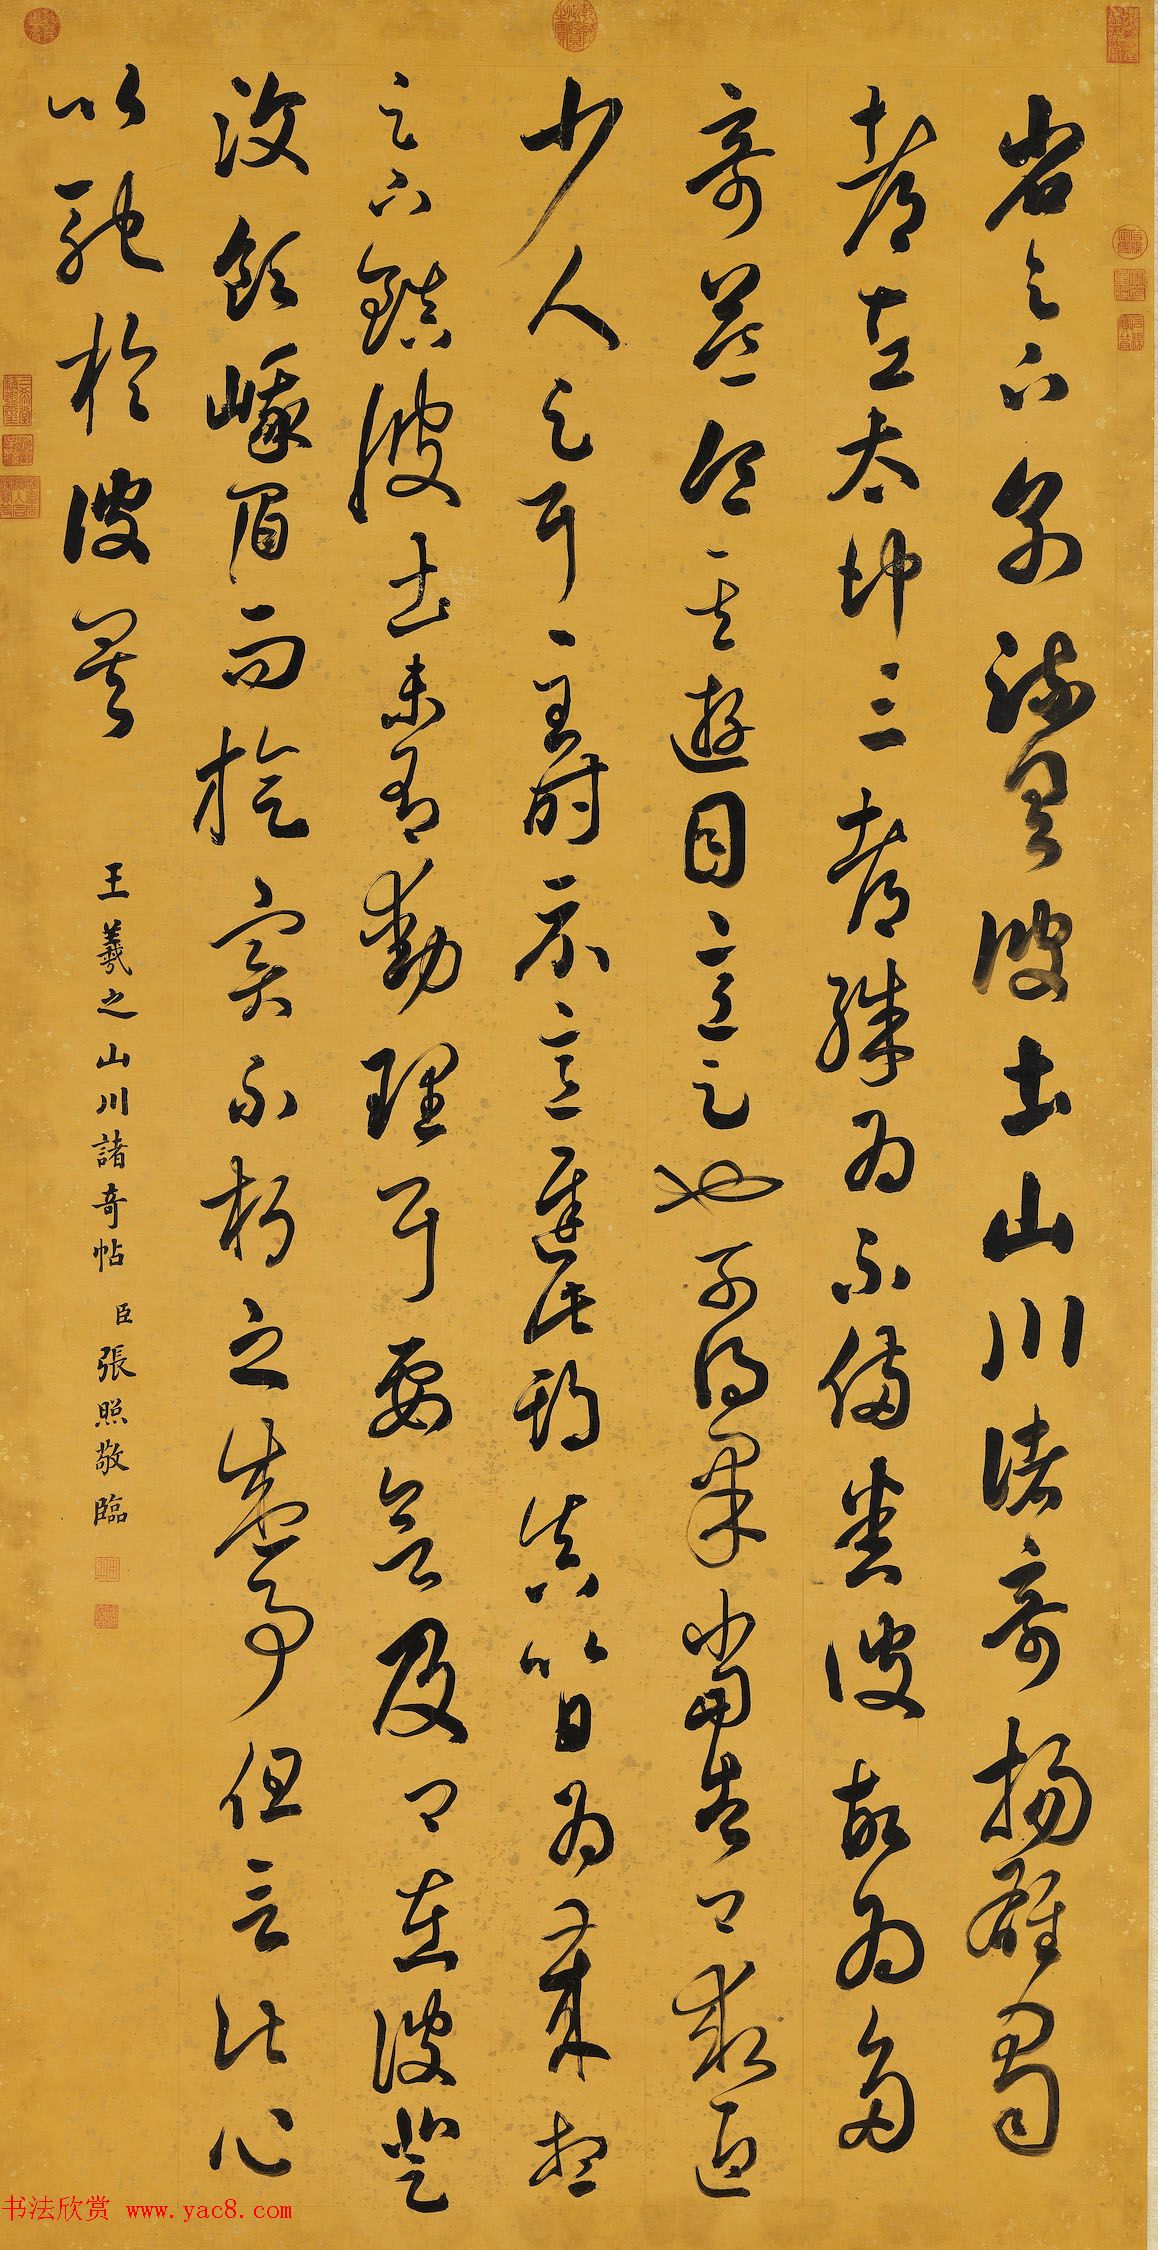 省足下別疏具彼土山川諸奇揚雄蜀
都左太沖三都殊為不備悉彼故為多
奇益令其遊目意足也可得果當告卿求迎
少人足耳至時示意遲此期真以日為歲想
足下鎮彼土未有動理耳要欲及卿在彼登
汶領峨眉而旋實不朽之盛事但言此心
以馳於彼矣
王羲之山川諸奇帖 臣張照敬臨
书法欣赏 www.yac8.com